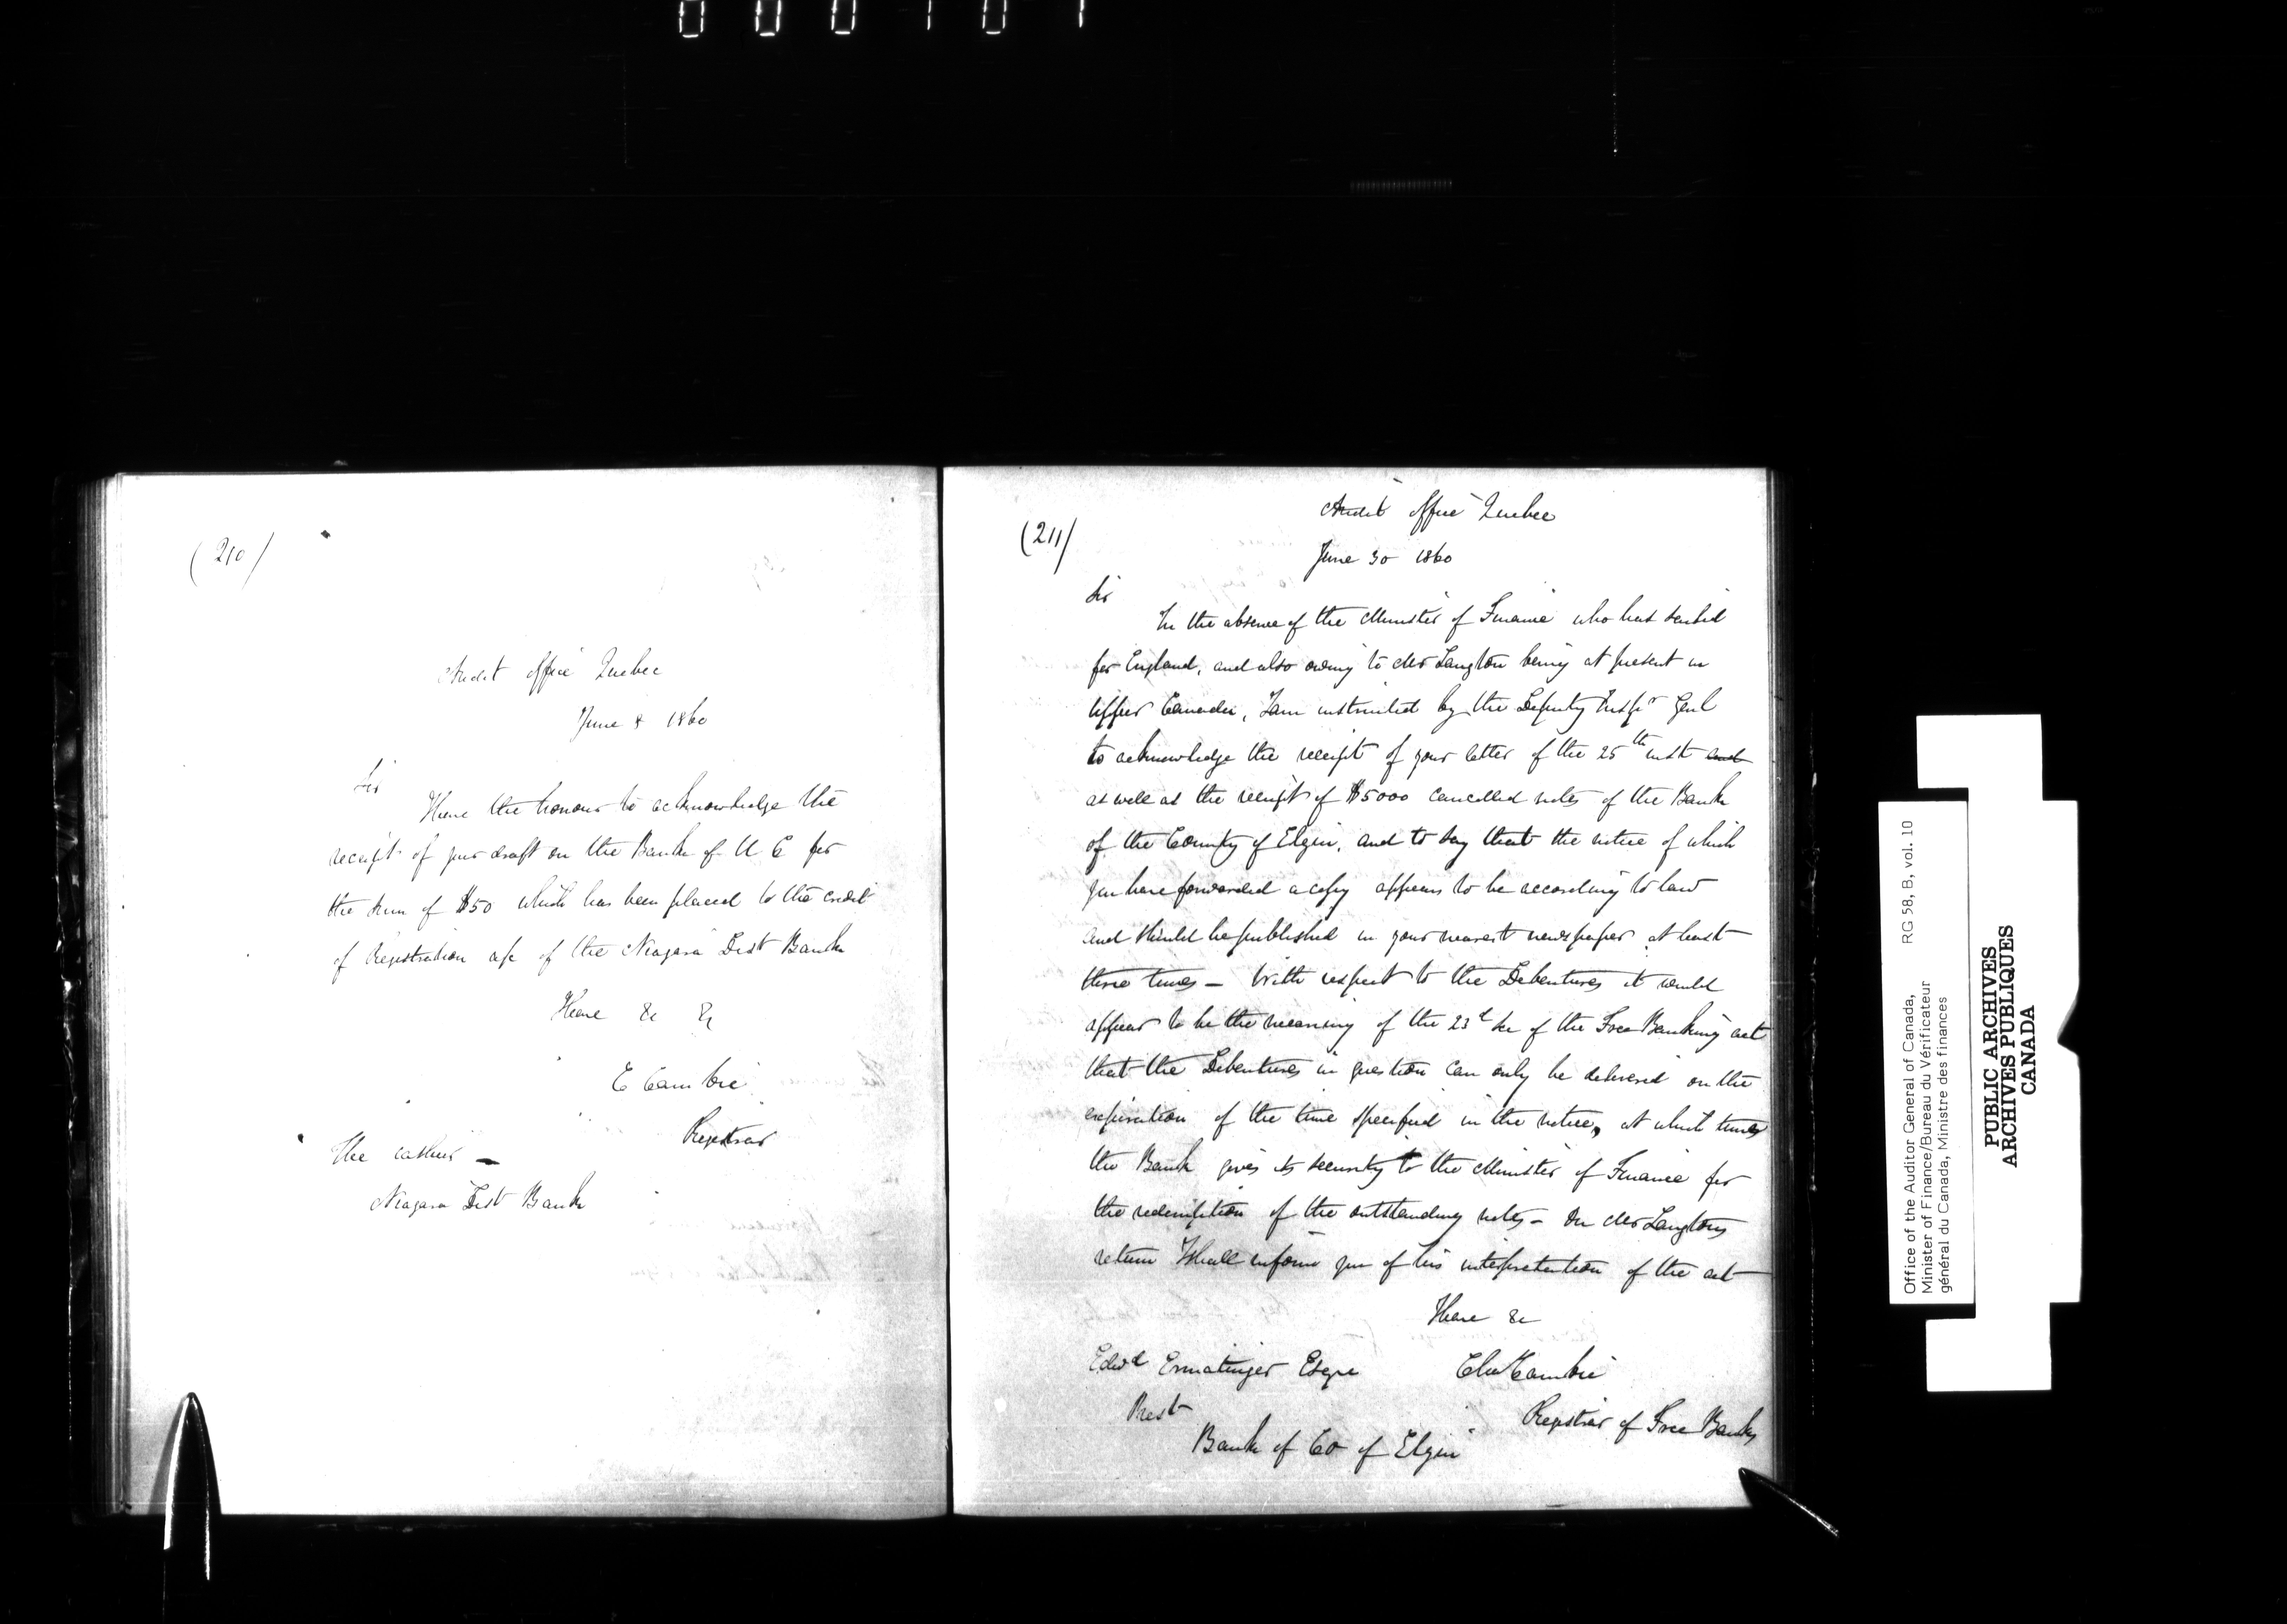 (210)
Audit Office Quebec
June 8 1860
Sir
I have the honour to acknowledge the
receipt of your draft on the Bank of U C for
the sum of $50 which has been placed to the credit
of Registration a/c of the Niagara Dist Bank
I have &c &c
C Cambie
Registrar
The cashier —
Niagara Dist Bank
(211)
Audit Office Quebec
June 30 1860
Sir
In the absence of the Minister of Finance who has sailed
for England, and also owing to Mr Langton being at present in
Upper Canada, I am instructed by the Deputy Inspr Genl
to acknowledge the receipt of your letter of the 25th inst and
as well as the receipt of $5000 cancelled notes of the Bank
of the County of Elgin, and to say that the notice of which
you have forwarded a copy appears to be according to law
and should be published in your nearest newspaper at least
three times — With respect to the Debentures it would
appear to be the meaning of the 23d sec of the Free Banking act
that the Debentures in question can only be delivered on the
expiration of the time specified in the notice, at which time
the Bank gives its security to the Minister of Finance for
the redemption of the outstanding notes — On Mr Langtons
return I shall inform you of his interpretation of the act
I have &c
Edwd Ermatinger Esqre
Chs Cambie
Prest
Registrar of Free Banks
Bank of Co of Elgin
Office of the Auditor General of Canada, RG 58, B, vol. 10
Minister of Finance/Bureau du Vérificateur
général du Canada, Ministre des finances
PUBLIC ARCHIVES
ARCHIVES PUBLIQUES
CANADA